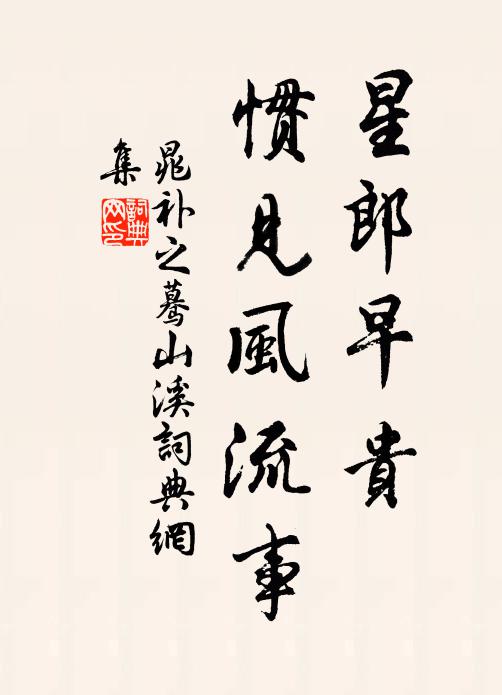 星郎早貴
慣見風流事
晁补之蓦山溪詞典網
集
詞典網印